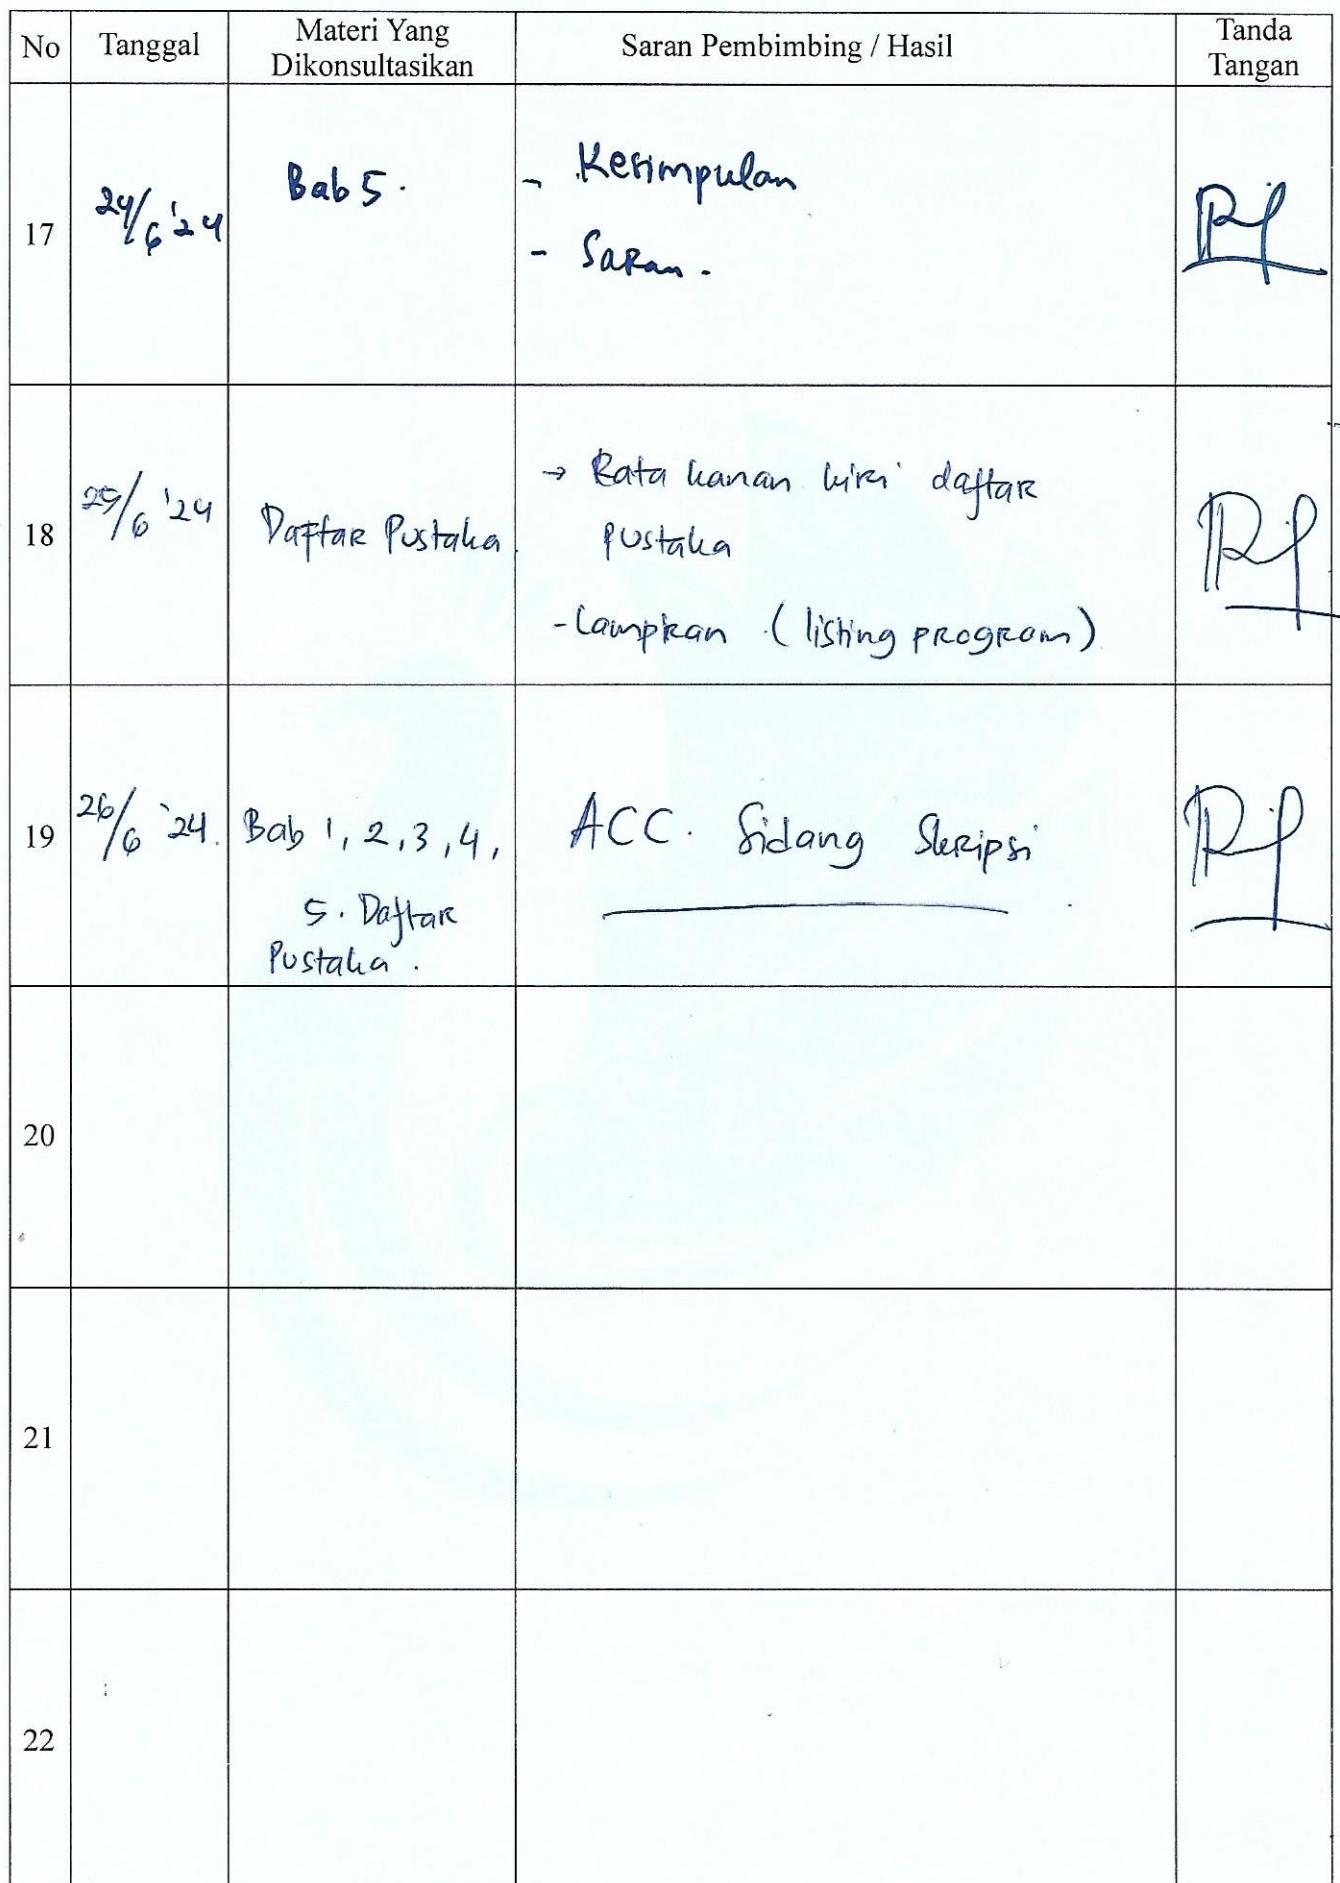 No Tanggal Materi Yang Dikonsultasikan Saran Pembimbing / Hasil Tanda Tangan
17 24/6 '24 Bab 5. - Kesimpulan
- Saran.
18 25/6 '24 Daftar Pustaka → Rata kanan kiri daftar
pustaka
- Lampiran (listing program)
19 26/6 '24. Bab 1, 2, 3, 4, ACC. Sidang Skripsi
5. Daftar
Pustaka.
20
21
22